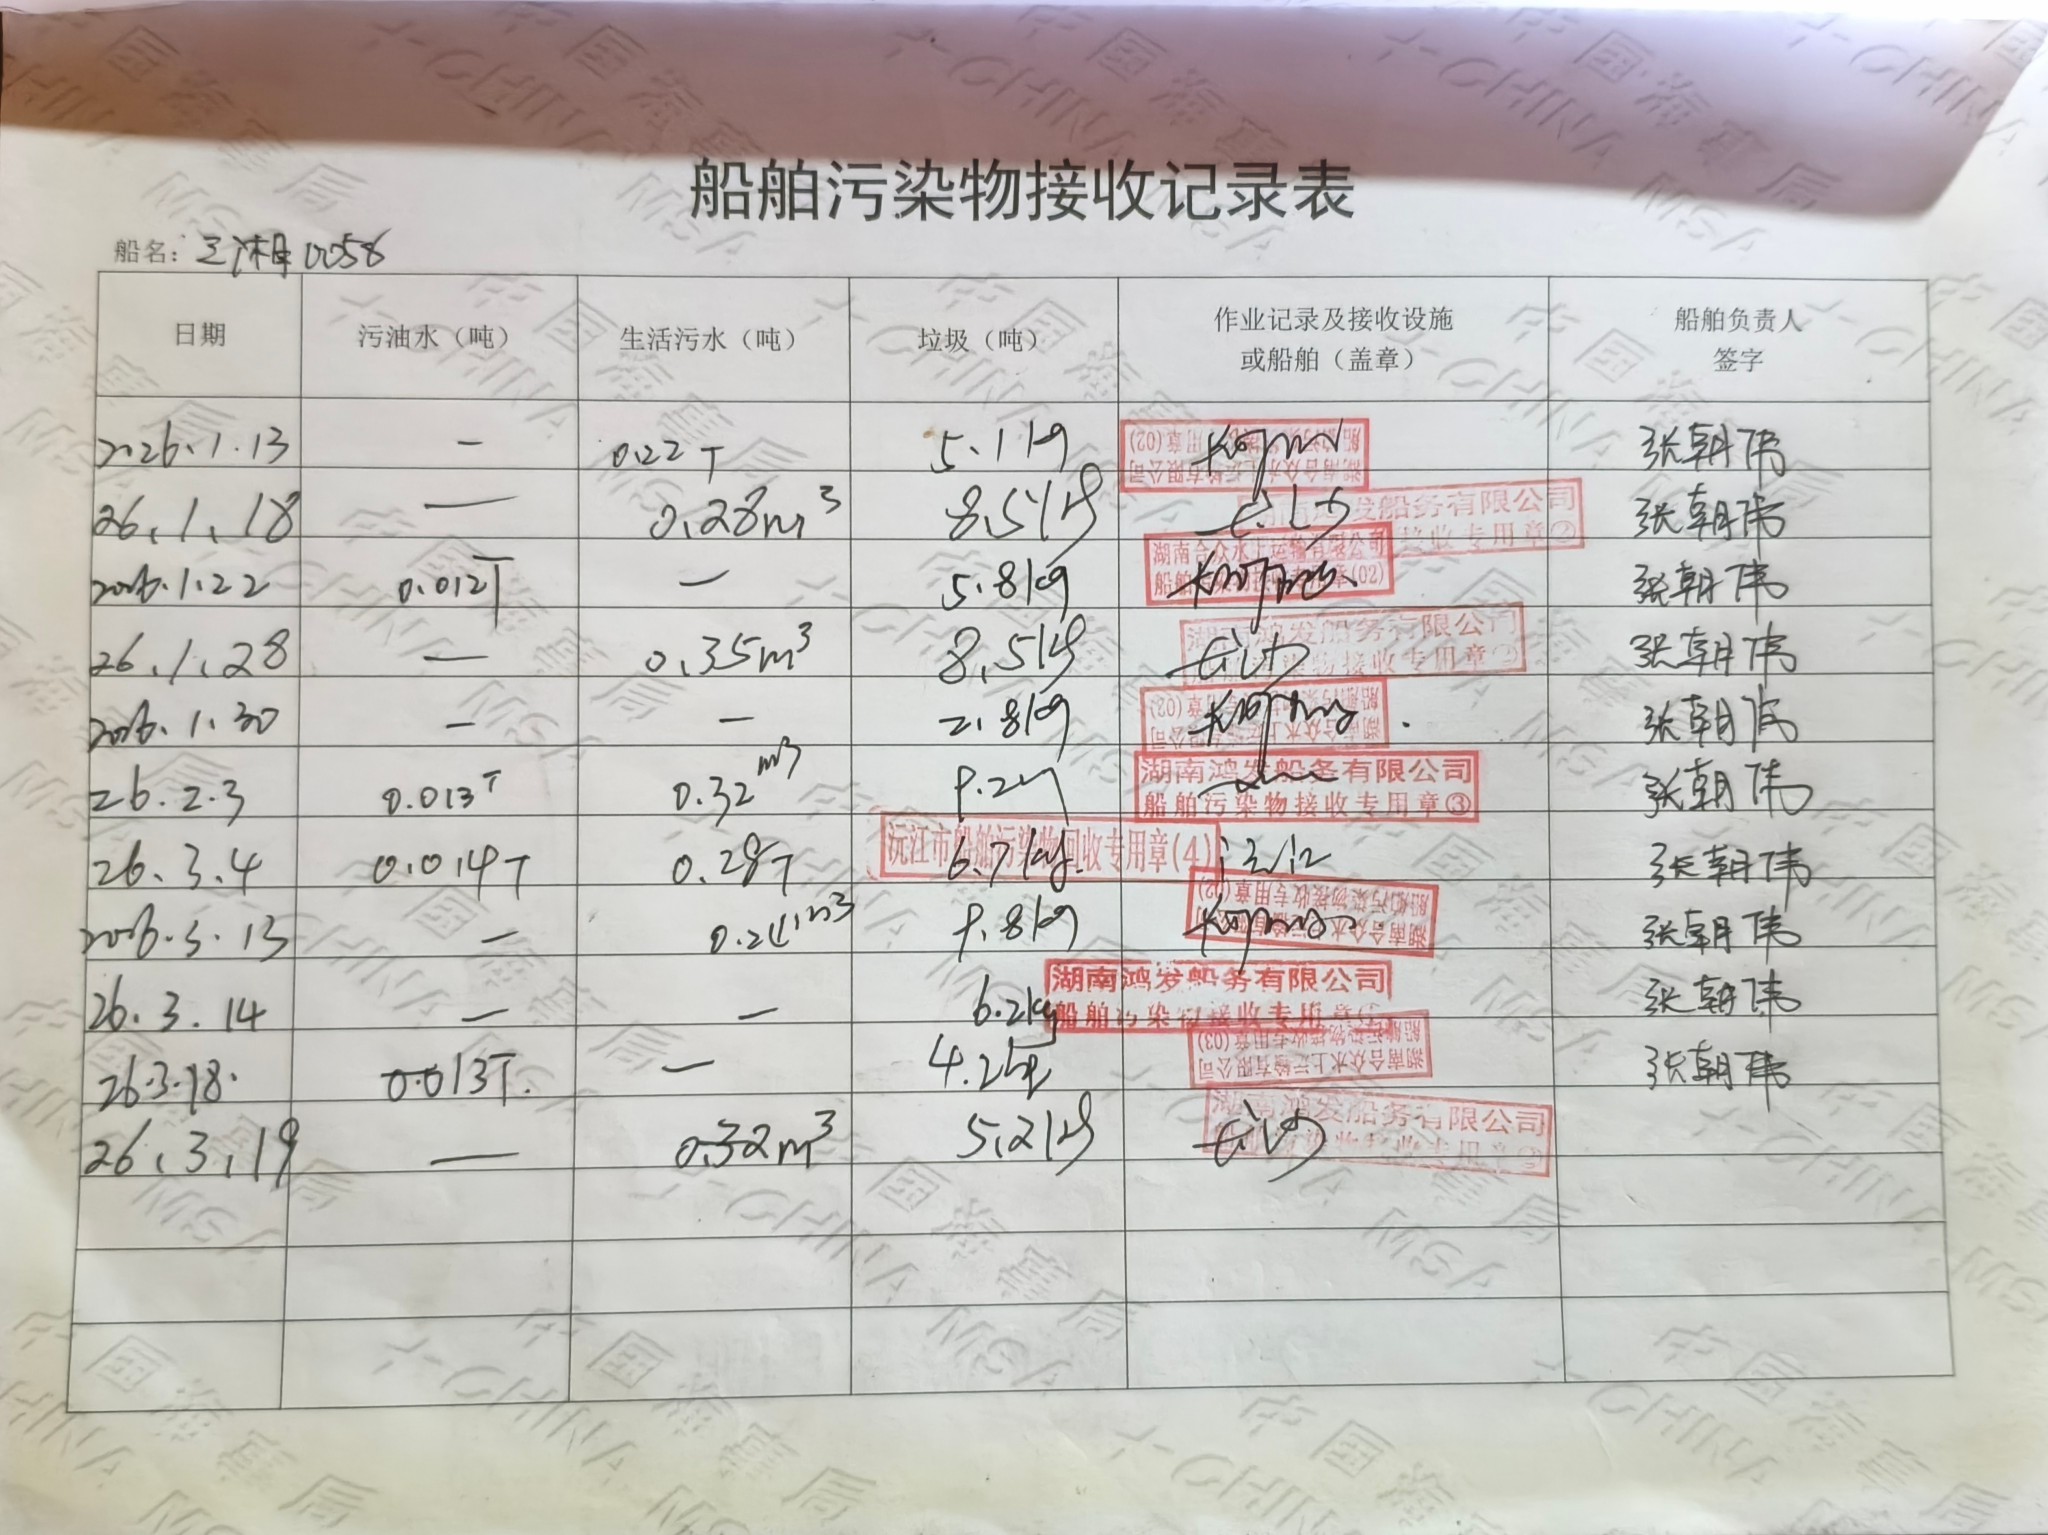 船舶污染物接收记录表
船名：三湘0058
日期 污油水（吨） 生活污水（吨） 垃圾（吨） 作业记录及接收设施或船舶（盖章） 船舶负责人签字
2026.1.13 — 0.22T 5.1kg 湖南合众水上运输有限公司 船舶污染物接收专用章(02) 张朝伟
26.1.18 — 0.28m³ 8.5kg 长沙 湖南鸿发船务有限公司 接收专用章② 张朝伟
2026.1.22 0.012T — 5.8kg 湖南合众水上运输有限公司 船舶污染物接收专用章(02) 张朝伟
26.1.28 — 0.35m³ 8.5kg 长沙 湖南鸿发船务有限公司 船舶污染物接收专用章 张朝伟
2026.1.30 — — 2.8kg 湖南合众水上运输有限公司 船舶污染物接收专用章(02) 张朝伟
26.2.3 0.013T 0.32m³ 9.2 湖南鸿发船务有限公司 船舶污染物接收专用章③ 张朝伟
26.3.4 0.014T 0.28T 6.7kg 沅江市船舶污染物回收专用章(4) 沅江 张朝伟
2026.3.13 — m³ 9.8kg 湖南合众水上运输有限公司 船舶污染物接收专用章(02) 张朝伟
26.3.14 — — 6.2kg 湖南鸿发船务有限公司 船舶污染物接收专用章 张朝伟
26.3.18. 0.013T. — 4.2kg 湖南合众水上运输有限公司 船舶污染物接收专用章(03) 张朝伟
26.3.19 — 0.32m³ 5.2kg 长沙 湖南鸿发船务有限公司 船舶污染物接收专用章
中国海事局
CHINA MSA